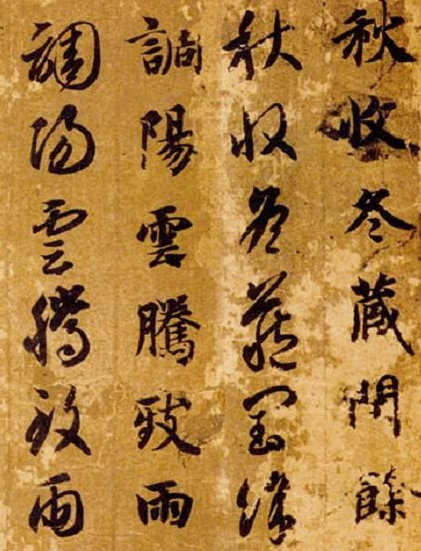 秋收冬藏閏餘
秋收冬藏閏餘
調陽雲騰致雨
調陽雲騰致雨